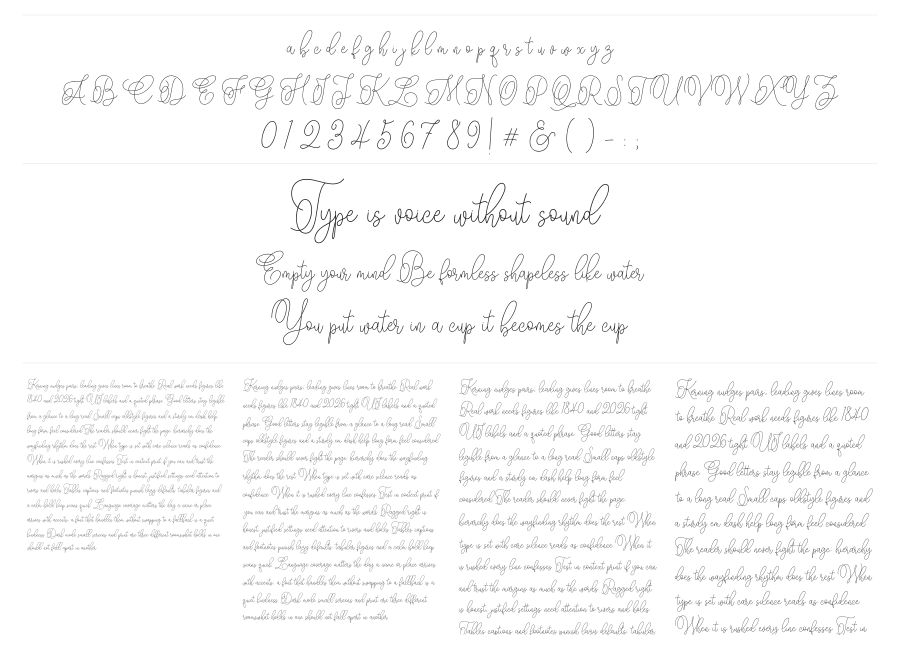 a b c d e f g h i j k l m n o p q r s t u v w x y z
A B C D E F G H I J K L M N O P Q R S T U V W X Y Z
0 1 2 3 4 5 6 7 8 9 ! # & ( ) - : ;
Type is voice without sound
Empty your mind Be formless shapeless like water
You put water in a cup it becomes the cup
Kerning nudges pairs, leading gives lines room to breathe. Real work needs figures like
1840 and 2026 right, US labels and a quoted phrase. Good letters stay legible
from a glance to a long read. Small caps oldstyle figures and a sturdy en dash help
long form feel considered. The reader should never fight the page. hierarchy does the
wayfinding rhythm does the rest. When type is set with care silence reads as confidence
When it is rushed every line confesses. Test in context print if you can and trust the
margins as much as the words. Ragged right is honest, justified settings need attention to
rivers and holes. Tables captions and footnotes punish lazy defaults, tabular figures and
a calm bold keep scans quiet. Language coverage matters the day a name or place
arrives with accents. a font that handles them without swapping to a fallback is a quiet
kindness. Dark mode small screens and print are three different
should not fall apart in another.
Kerning nudges pairs, leading gives lines room to breathe. Real work
needs figures like 1840 and 2026 right, US labels and a quoted
phrase. Good letters stay legible from a glance to a long read. Small
caps oldstyle figures and a sturdy en dash help long form feel considered
The reader should never fight the page. hierarchy does the wayfinding
rhythm does the rest. When type is set with care silence reads as
confidence. When it is rushed every line confesses. Test in context print if
you can and trust the margins as much as the words. Ragged right is
honest, justified settings need attention to rivers and holes. Tables captions
and footnotes punish lazy defaults, tabular figures and a calm bold keep
scans quiet. Language coverage matters the day a name or place arrives
with accents. a font that handles them without swapping to a fallback is a
quiet kindness. Dark mode small screens and print are three different
in one should not fall apart in another.
Kerning nudges pairs, leading gives lines room to breathe
Real work needs figures like 1840 and 2026 right
US labels and a quoted phrase. Good letters stay
legible from a glance to a long read. Small caps oldstyle
figures and a sturdy en dash help long form feel
considered. The reader should never fight the page
hierarchy does the wayfinding rhythm does the rest. When
type is set with care silence reads as confidence. When it
is rushed every line confesses. Test in context print if you can
and trust the margins as much as the words. Ragged right
is honest, justified settings need attention to rivers and holes
Tables captions and footnotes punish lazy defaults, tabular
Kerning nudges pairs, leading gives lines room
to breathe. Real work needs figures like 1840
and 2026 right, US labels and a quoted
phrase. Good letters stay legible from a glance
to a long read. Small caps oldstyle figures and
a sturdy en dash help long form feel considered
The reader should never fight the page. hierarchy
does the wayfinding rhythm does the rest. When
type is set with care silence reads as confidence
When it is rushed every line confesses. Test in